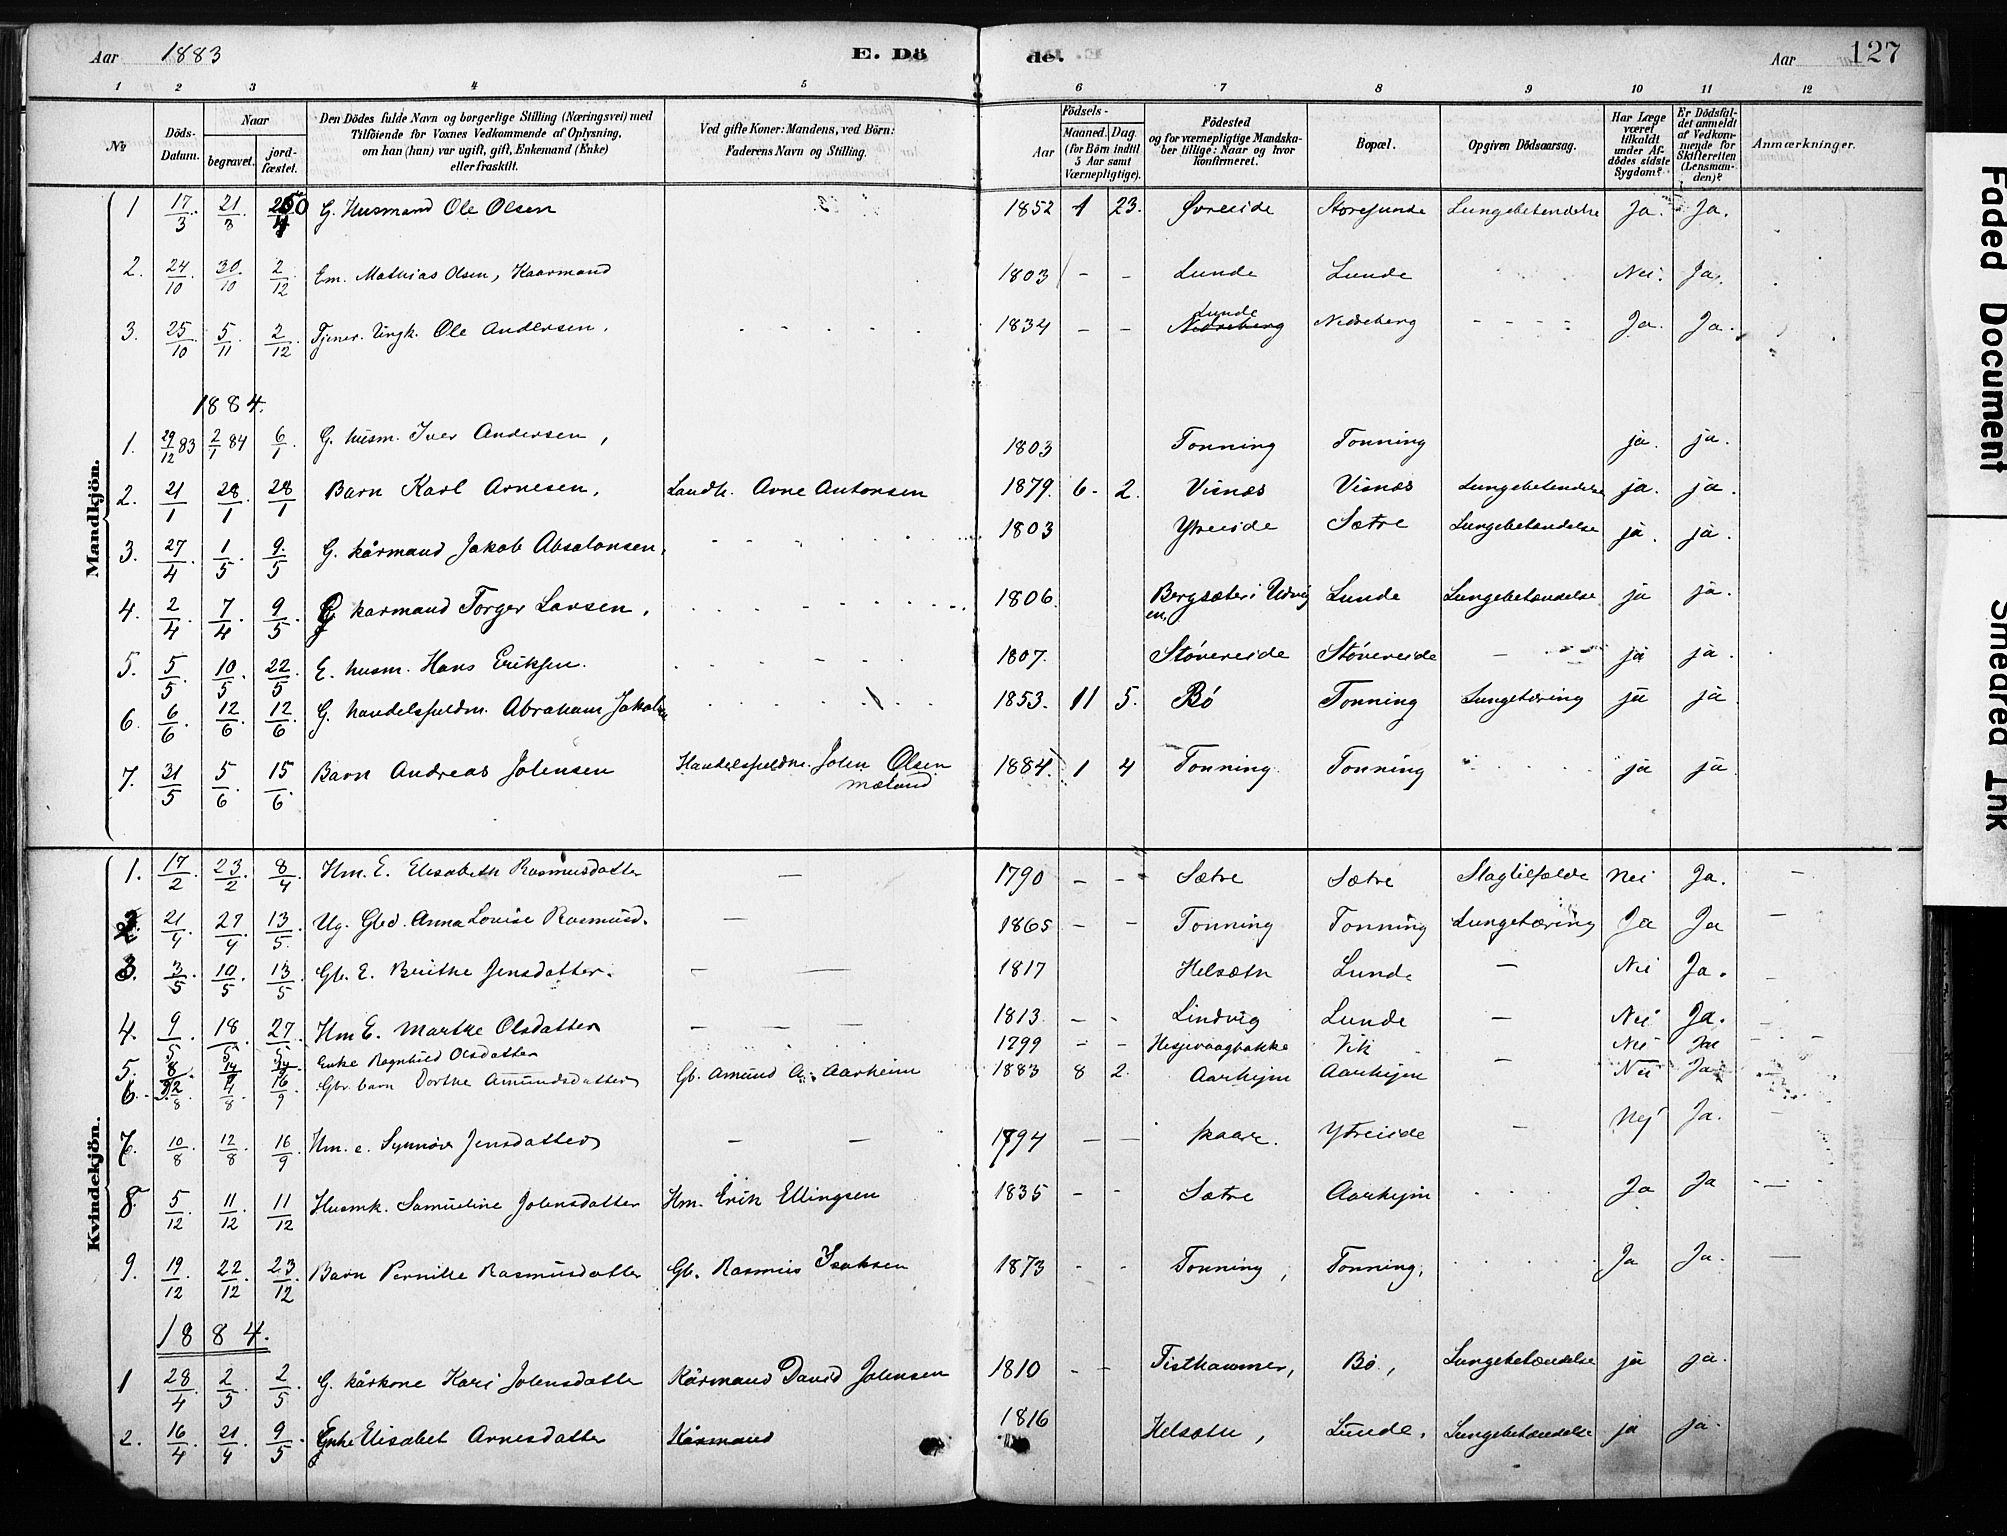 Aar 1883 E. Dö de. Aar 127
1 2 3 4 5 6 7 8 9 10 11 12
No Döds-Datum. Naar begravet. jord-fæstet. Den Dödes fulde Navn og borgerlige Stilling (Næringsvei) med Tilföiende for Voxnes Vedkommende af Oplysning, om han (hun) var ugift, gift, Enkemand (Enke) eller fraskilt. Ved gifte Koner: Mandens, ved Börn: Faderens Navn og Stilling. Födsels- Aar Maaned. Dag. (for Börn indtil 5 Aar samt Værnepligtige). Födested og for værnepligtige Mandskaber tillige: Naar og hvor konfirmeret. Bopæl. Opgiven Dödsaarsag. Har Læge været tilkaldt under Afdödes sidste Sygdom? Er Dödsfaldet anmeldt af Vedkommende for Skifteretten (Lensmanden)? Anmærkninger.
Mandkjön.
1 17/3 21/3 G. Husmand Ole Olsen 1852 1 23. Øvreeide Storesunde Lungebetendelse Ja. Ja.
2. 24/10 30/10 2/12 Em. Mathias Olsen, Kaarmand 1803 - - Lunde Lunde Nei. Ja.
3. 25/10 5/11 2/12 Tjener. Ungk. Ole Andersen. 1834 - - Lunde Nedreberg Nedreberg Ja. Ja.
1884.
1. 29/12 83 2/1 84 6/1 G. husm. Iver Andersen, 1803 Tonning Tonning ja. ja.
2. 21/1 28/1 28/1 Barn Karl Arnesen, Landh. Arne Antonsen 1879. 6 2. Visnæs Visnæs Lungebetendelse ja. ja.
3. 27/4 1/5 9/5 G. kårmand Jakob Absalonsen, 1803 Ytreeide Sætre Lungebetændelse ja. ja.
4. 2/4 7/4 9/5 G karmand Torger Larsen, 1806. Bergsæter i Udvigen, Lunde Lungebetændelse ja ja.
5. 5/5 10/5 22/5 E. husm. Hans Eriksen. 1807. Støvereide Støvereide - ja ja.
6. 6/6 12/6 12/6 G. handelsfuldm. Abraham Jakobsen 1853. 11 5. Bø Tonning Lungetæring ja ja
7. 31/5 5/6 15/6 Barn Andreas Johnsen Handelsfuldm. John Olsen Mæland 1884. 1 4 Tonning Tonning ja ja
Kvindekjön.
1. 17/2 23/2 8/4 Hm. E. Elisabeth Rasmusdatter - 1790 - - Sætre Sætre Slagtilfælde Nei Ja. -
2. 21/4 27/4 13/5 Ug. Gbd. Anna Lovise Rasmusd. - 1865 - - Tonning Tonning Lungetæring Ja Ja -
3. 3/5 10/5 13/5 Gb. E. Berithe Jensdatter. - - 1817 Helsætn Lunde - Nei Ja. -
4. 9/5 18/5 27/5 Hm E. Marthe Olsdatter - - - 1813 - - Lindvig Lunde - Nei Ja. -
5. Enke Ragnhild Olsdatter 1799 - - Hesjevaagbakke Vik Nei Ja
6. Gbr. barn Dorthe Amundsdatter Gb. Amund A. Aarheim 1883 8 2. Aarhejm Aarhejm - Nei Ja
7. 10/8 12/8 16/9 Hm. e. Synnøve Jensdatter - - 1794 - - Skaare. Ytreeide - Nej Ja. -
8. 5/12 11/12 11/12 Husmk. Samueline Johnsdatter Hm. Erik Ellingsen 1835 - - Sætre Aarhejm Ja Ja -
9. 19/12 22/12 23/12 Barn Pernille Rasmusdatter Gb. Rasmus Isaksen 1873 - - Tonning, Tonning, Ja Ja. -
1884.
1 28/4 2/5 2/5 G. kårkone Kari Johnsdatter Kårmand David Johnsen 1810 - - Tisthammer, Bø, Lungebetændelse ja ja.
2. 16/4 21/4 9/5 Enke Elisabet Arnesdatter Kårmand 1816 Helsætn, Lunde, Lungebetændelse ja ja.
Faded Document Smeared Ink